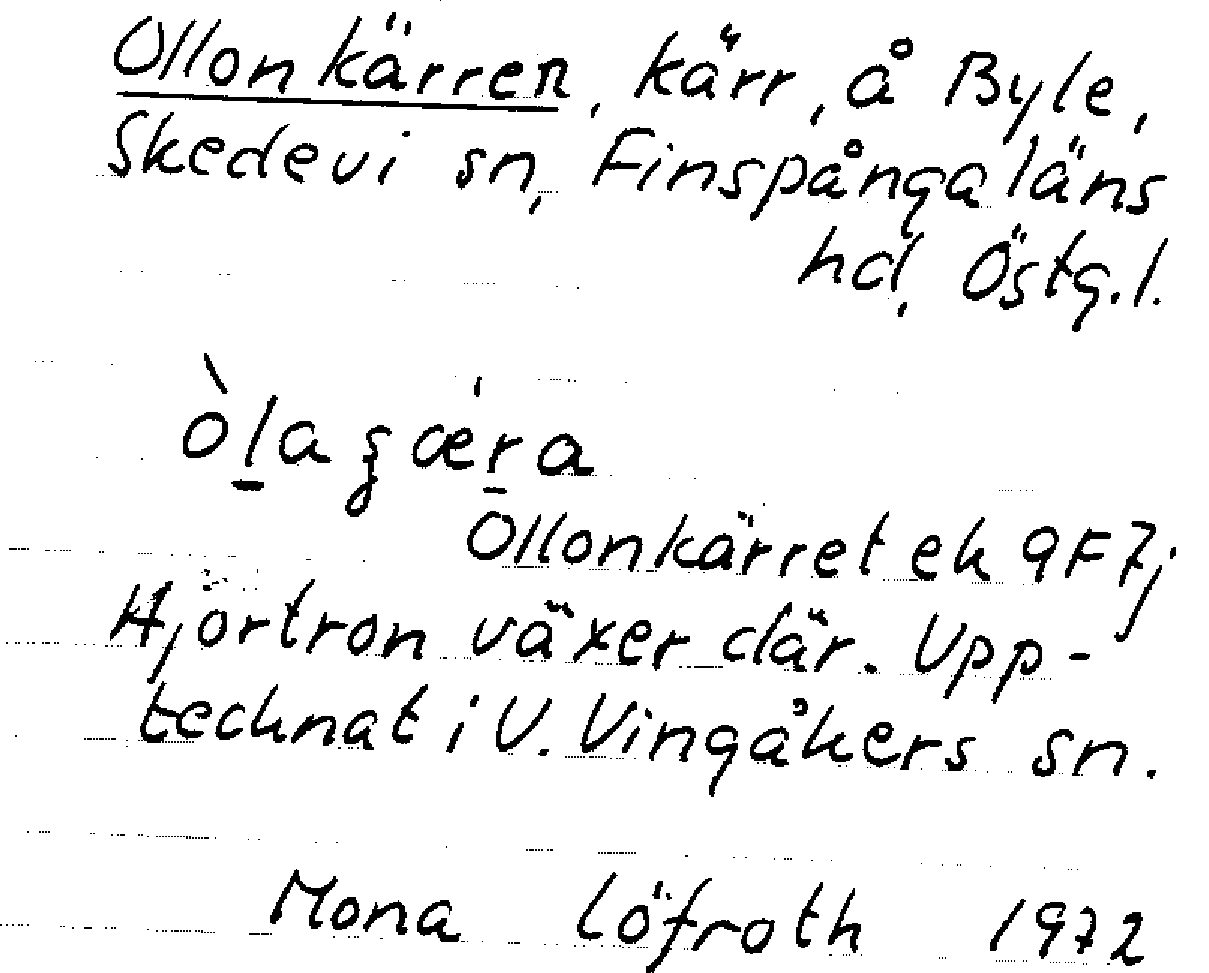 Ollonkärren, kärr, å Byle,
Skedevi sn, Finspånga läns
hd, Östg.l.
òlaʂæ̀ra
Ollonkärret ek 9F7j
Hjortron växer där. Upp-
tecknat i V. Vingåkers sn.
Mona Löfroth 1972